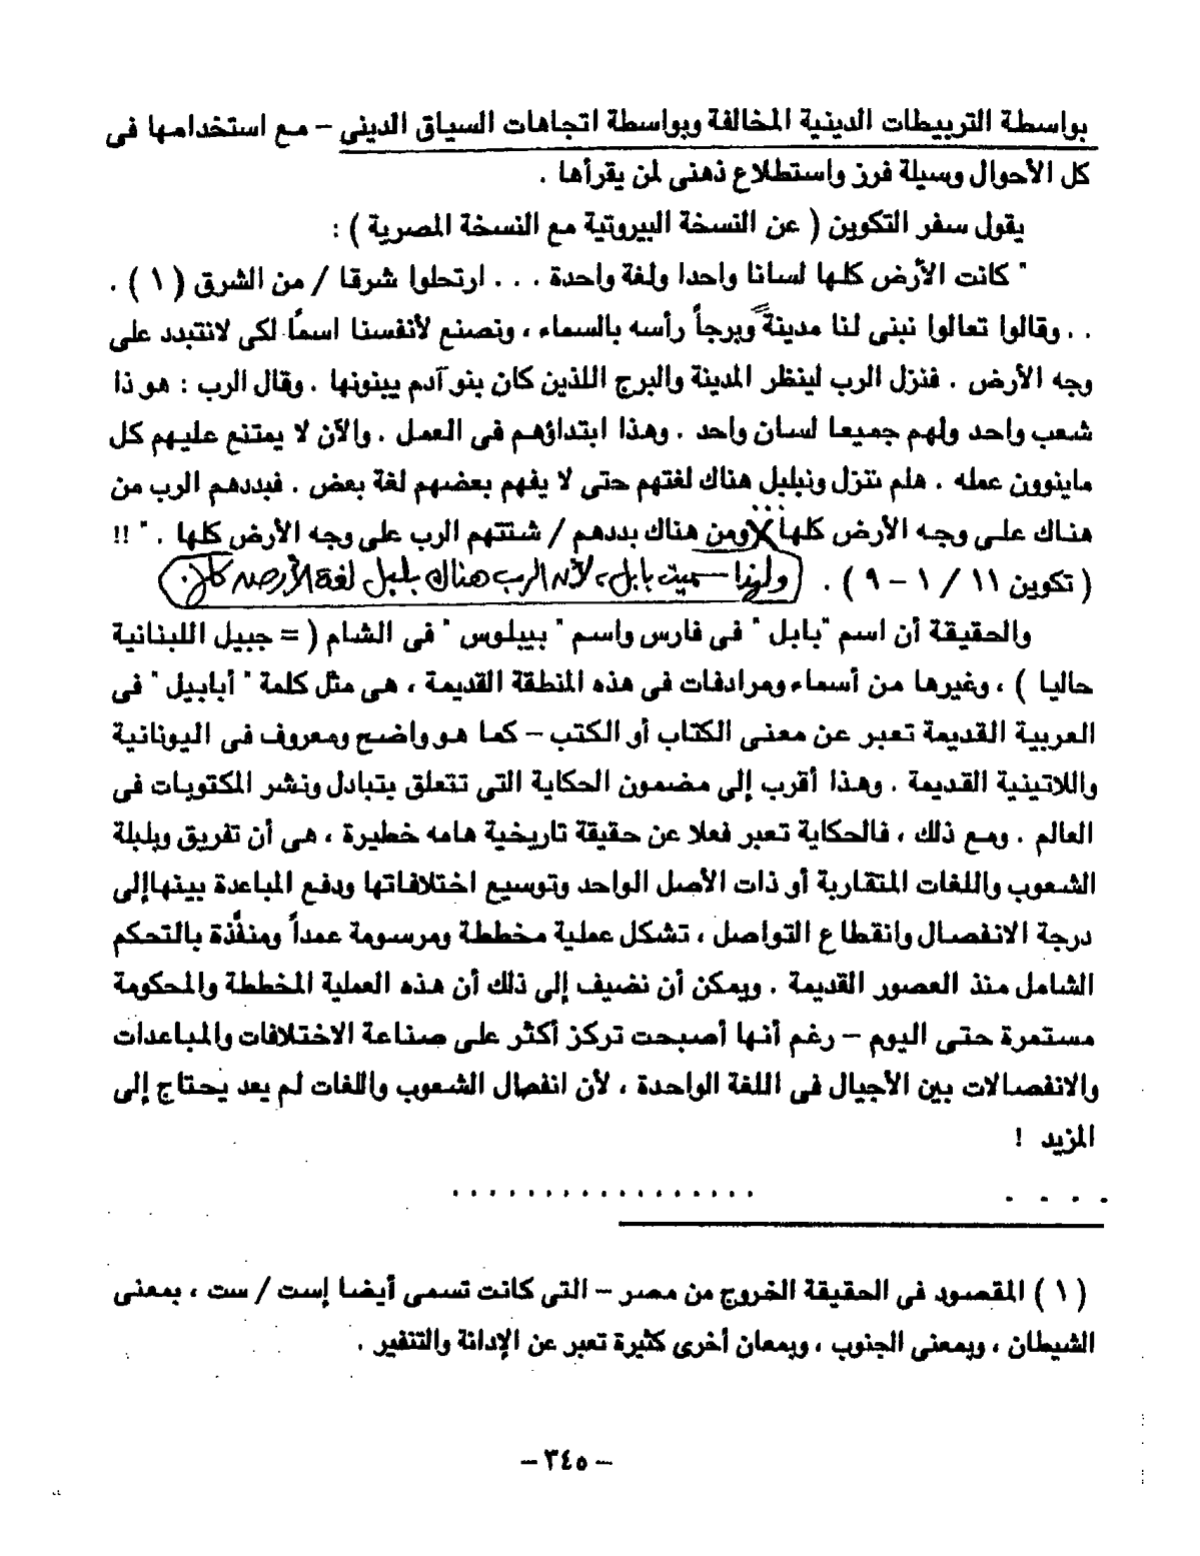 بواسطة التربيطات الدينية المخالفة وبواسطة اتجاهات السياق الدينى – مع استخدامها فى
كل الأحوال وسيلة فرز واستطلاع ذهنى لمن يقرأها .
يقول سفر التكوين ( عن النسخة البيروتية مع النسخة المصرية ) :
" كانت الأرض كلها لسانا واحدا ولغة واحدة . . . ارتحلوا شرقا / من الشرق ( ١ ) .
. . وقالوا تعالوا نبنى لنا مدينة وبرجاً رأسه بالسماء ، ونصنع لأنفسنا اسمًا لكى لانتبدد على
وجه الأرض . فنزل الرب لينظر المدينة والبرج اللذين كان بنو آدم يبنونها . وقال الرب : هو ذا
شعب واحد ولهم جميعا لسان واحد . وهذا ابتداؤهم فى العمل . والآن لا يمتنع عليهم كل
ماينوون عمله . هلم ننزل ونبلبل هناك لغتهم حتى لا يفهم بعضهم لغة بعض . فبددهم الرب من
هناك على وجه الأرض كلها ... ومن هناك بددهم / شتتهم الرب على وجه الأرض كلها . " !!
( تكوين ١١ / ١ – ٩ ) . ولهذا سميت بابل، لأن الرب هناك بلبل لغة الأرض كلها.
والحقيقة أن اسم "بابل " فى فارس واسم " بيبلوس " فى الشام ( = جبيل اللبنانية
حاليا ) ، وغيرها من أسماء ومرادفات فى هذه المنطقة القديمة ، هى مثل كلمة " أبابيل " فى
العربية القديمة تعبر عن معنى الكتاب أو الكتب – كما هو واضح ومعروف فى اليونانية
واللاتينية القديمة . وهذا أقرب إلى مضمون الحكاية التى تتعلق بتبادل ونشر المكتوبات فى
العالم . ومع ذلك ، فالحكاية تعبر فعلا عن حقيقة تاريخية هامه خطيرة ، هى أن تفريق وبلبلة
الشعوب واللغات المتقاربة أو ذات الأصل الواحد وتوسيع اختلافاتها ودفع المباعدة بينهاإلى
درجة الانفصال وانقطاع التواصل ، تشكل عملية مخططة ومرسومة عمداً ومنفَّذة بالتحكم
الشامل منذ العصور القديمة . ويمكن أن نضيف إلى ذلك أن هذه العملية المخططة والمحكومة
مستمرة حتى اليوم – رغم أنها أصبحت تركز أكثر على صناعة الاختلافات والمباعدات
والانفصالات بين الأجيال فى اللغة الواحدة ، لأن انفصال الشعوب واللغات لم يعد يحتاج إلى
المزيد !
. . . . . . . . . . . . . . . . . . . . .
( ١ ) المقصود فى الحقيقة الخروج من مصر – التى كانت تسمى أيضا إست / ست ، بمعنى
الشيطان ، وبمعنى الجنوب ، وبمعان أخرى كثيرة تعبر عن الإدانة والتنفير .
– ٣٤٥ –